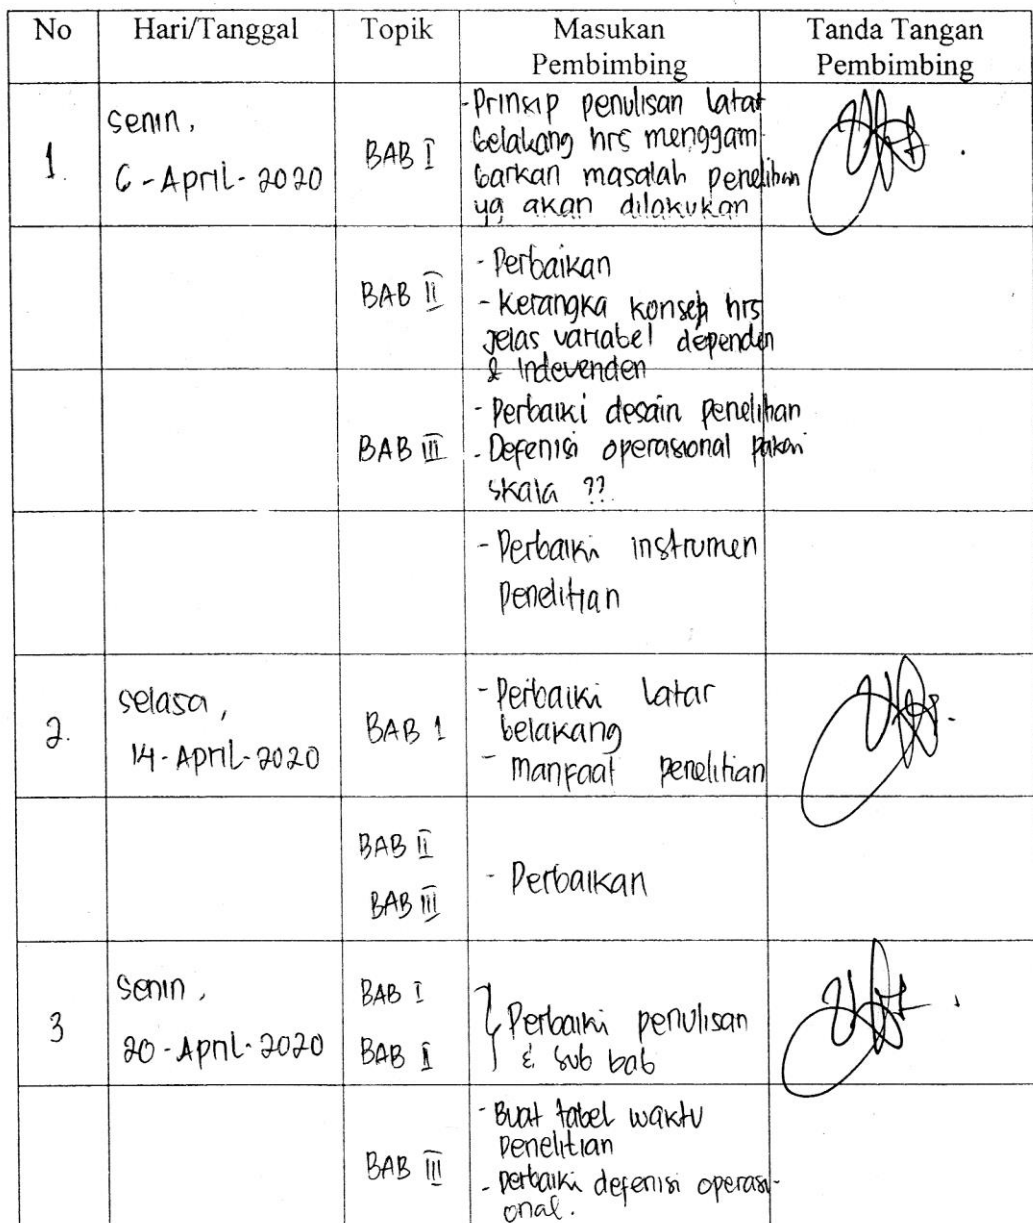 No Hari/Tanggal Topik Masukan Pembimbing Tanda Tangan Pembimbing
1. Senin,
6-April-2020
BAB I
- Prinsip penulisan latar
belakang hrs menggam-
barkan masalah penelitian
yg akan dilakukan
BAB II
- Perbaikan
- Kerangka konsep hrs
jelas variabel dependen
& Indevenden
BAB III
- Perbaiki desain penelitian
- Defenisi operasional pakai
skala ??
- Perbaiki instrumen
Penelitian
2. Selasa,
14-April-2020
BAB 1
- Perbaiki latar
belakang
- Manfaat penelitian
BAB II
BAB III
- Perbaikan
3 Senin,
20-April-2020
BAB I
BAB II
Perbaiki penulisan
& sub bab
BAB III
- Buat tabel waktu
Penelitian
- perbaiki defenisi operasi-
onal.